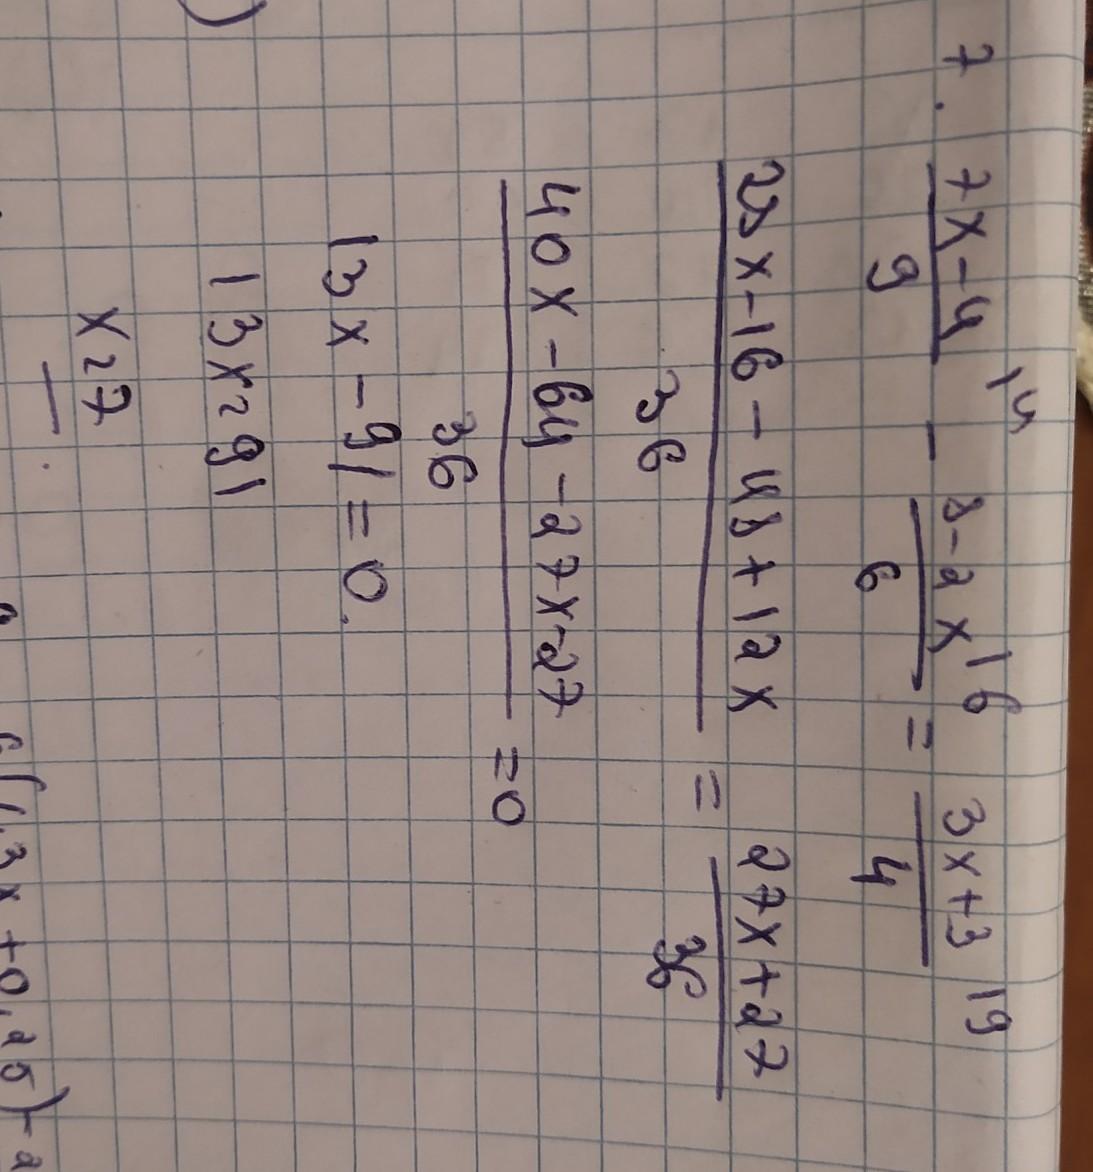 7. (7x-4)/9 |4 - (8-2x)/6 |6 = (3x+3)/4 |9
(28x-16-48+12x)/36 = (27x+27)/36
(40x-64-27x-27)/36 =0
13x-91=0.
13x=91
x=7